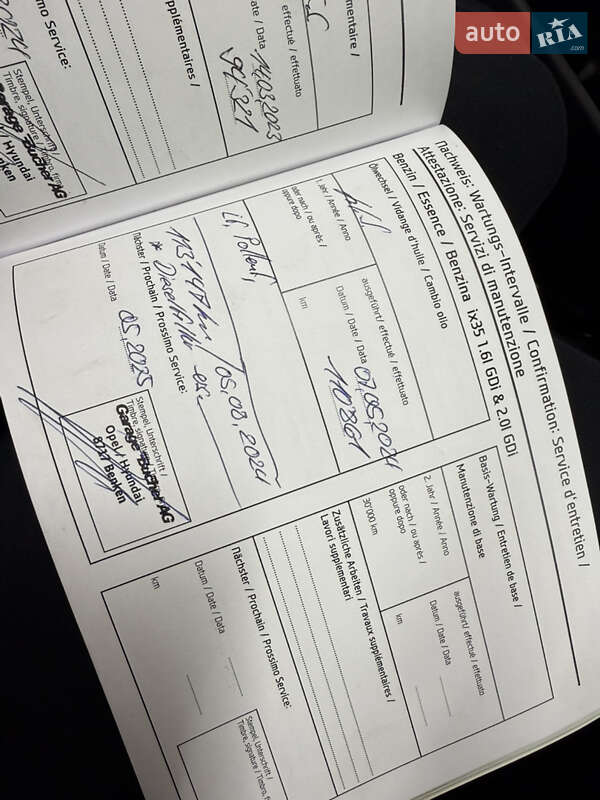 auto
RIA
.com
mentaire /
effectué / effettuato
Date / Data 14.03.2023
94'321
supplémentaires /
Prossimo Service:
Stempel, Unterschrift /
Timbre, signature /
Garage Bucher AG
Opel / Hyundai
Benken
Nachweis: Wartungs-Intervalle / Confirmation: Service d'entretien /
Attestazione: Servizi di manutenzione
Benzin / Essence / Benzina ix35 1.6l GDi & 2.0l GDi
Ölwechsel / Vidange d'huile / Cambio olio
1. Jahr / Année / Anno
oder nach / ou après /
oppure dopo
km
ausgeführt / effectué / effettuato
Datum / Date / Data 07.05.2024
110861
113'147 km / 05.08.2024
Nächster / Prochain / Prossimo Service:
Datum / Date / Data 05.2025
Stempel, Unterschrift /
Timbre, signature
Garage Bucher AG
Opel / Hyundai
8717 Benken
Basis-Wartung / Entretien de base /
Manutenzione di base
2. Jahr / Année / Anno
oder nach / ou après /
oppure dopo
30'000 km
ausgeführt / effectué / effettuato
Datum / Date / Data
km
Zusätzliche Arbeiten / Travaux supplémentaires /
Lavori supplementari
Nächster / Prochain / Prossimo Service:
Datum / Date / Data
km
Stempel, Unterschrift /
Timbre, signature / Timbro, f